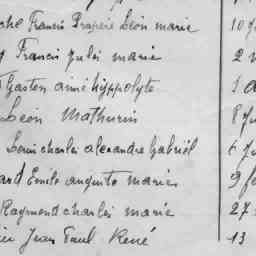 che Francis Prosper Léon marie 10 j
Francis Jules marie 2
Gaston aimé hyppolyte 1 a
Léon Mathurin 8 ju
Louis charles alexandre Gabriël 6 ju
ard Emile auguste marie 9 f
Raymond charles marie 27
Jean Paul René 13